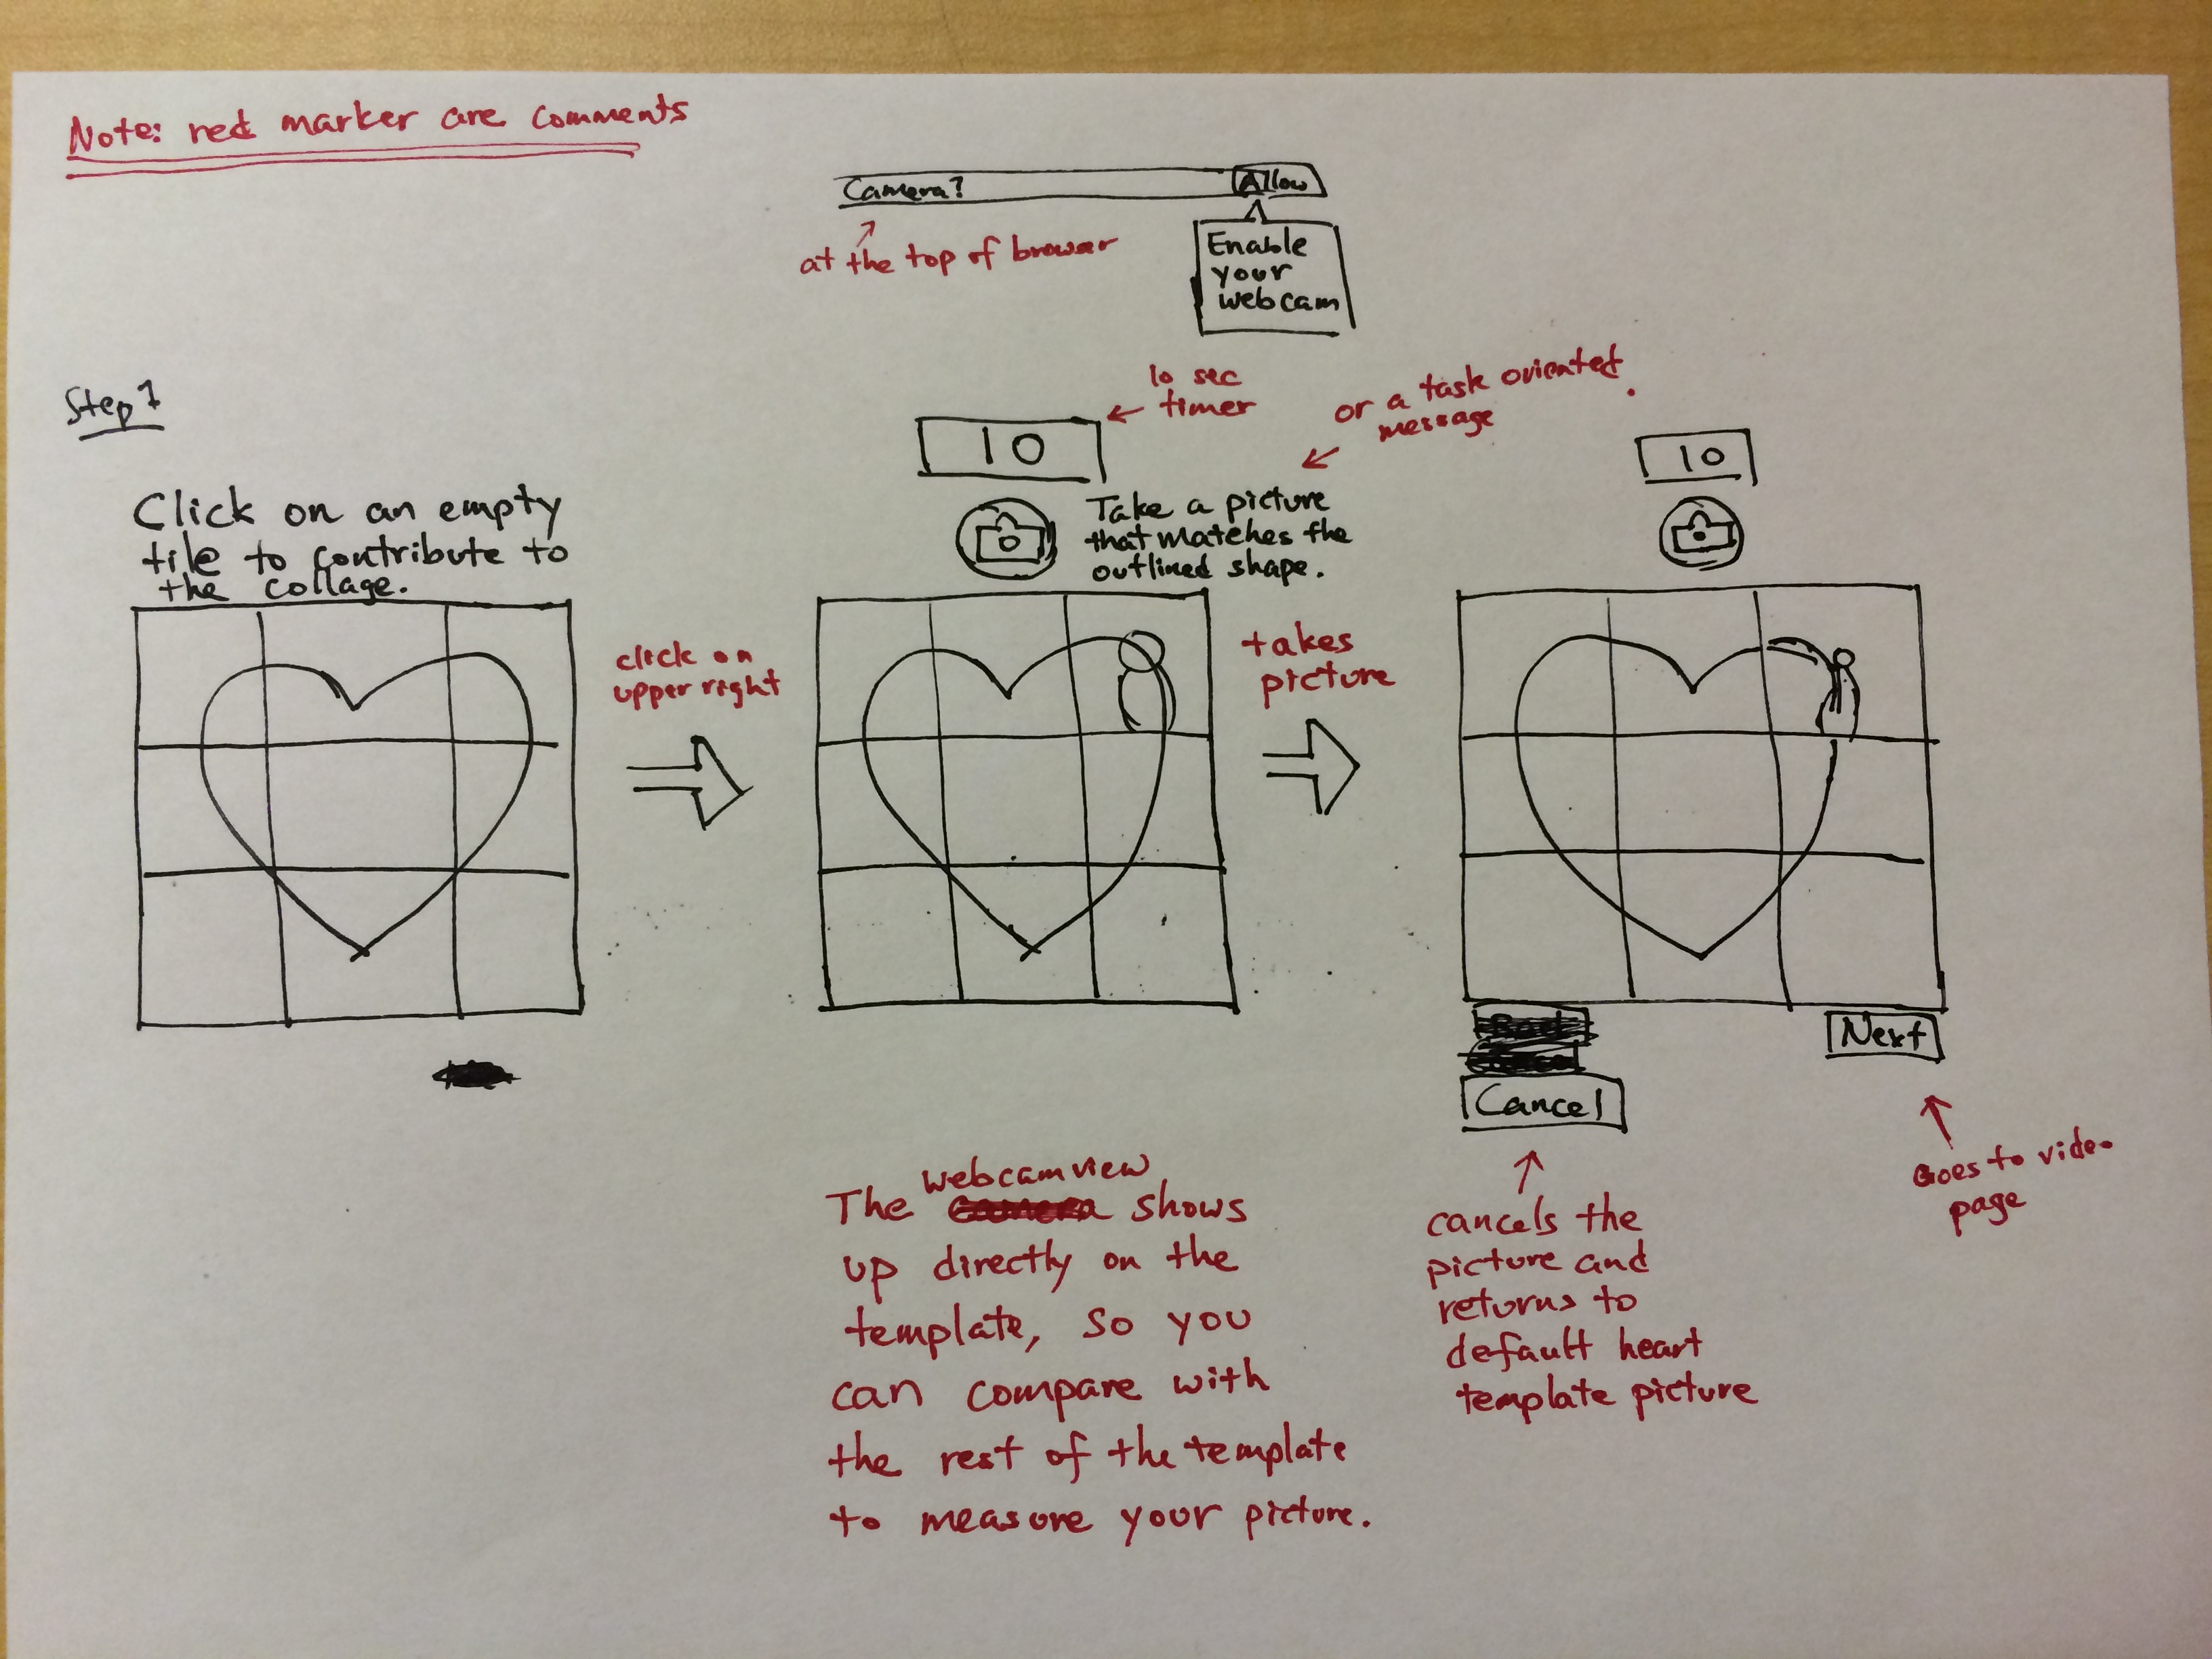 Note: red marker are comments
Camera?
Allow
at the top of browser
Enable
your
webcam
Step 1
10 sec
timer
or a task oriented
message
10
10
Click on an empty
tile to contribute to
the collage.
Take a picture
that matches the
outlined shape.
click on
upper right
takes
picture
Next
Cancel
Goes to video
page
The webcam view shows
up directly on the
template, so you
can compare with
the rest of the template
to measure your picture.
cancels the
picture and
returns to
default heart
template picture